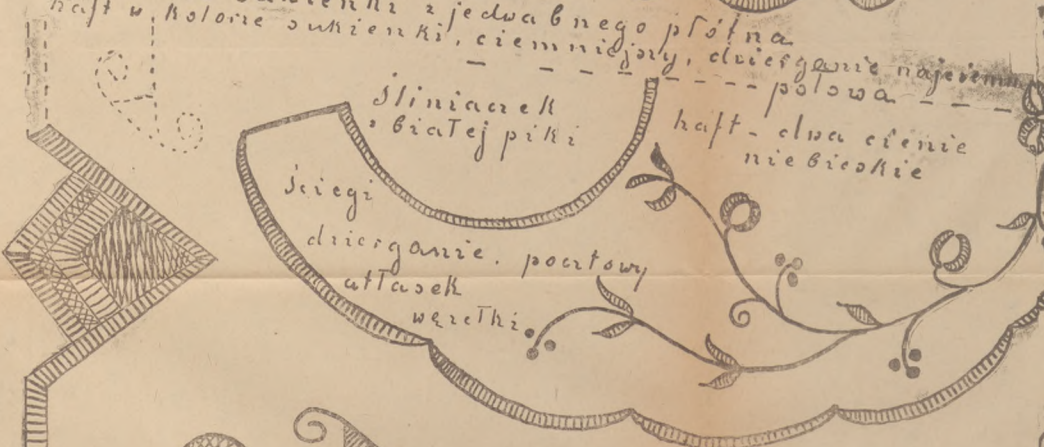 sukienki z jedwabnego płótna
haft w kolorze sukienki, ciemniejszy, dzierganie najciemn
połowa
śliniaczek
z białej piki
haft - dwa cienie
niebieskie
ściegi
dzierganie, pocztowy
atłasek
węzełki